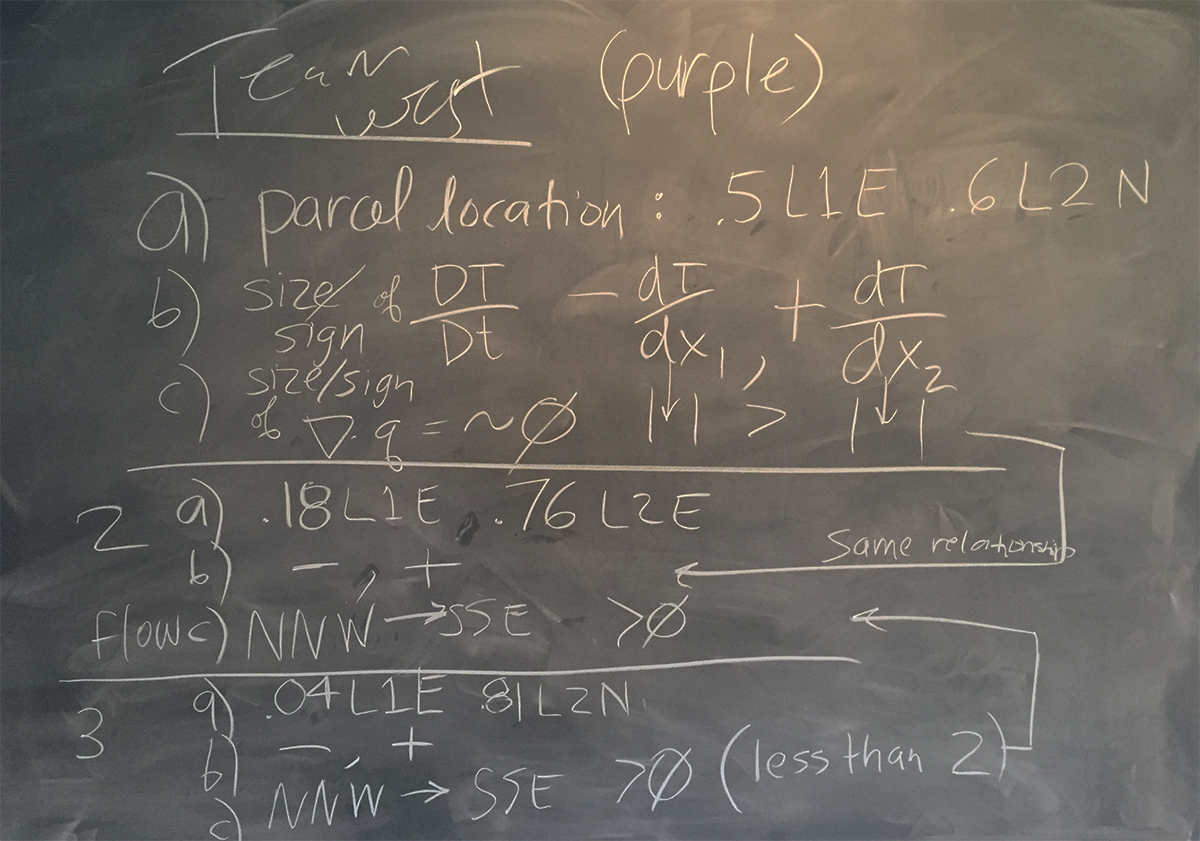 Team West (purple)
a) parcel location : .5 L1 E .6 L2 N
b) size/sign of DT/Dt - dT/dx₁ , + dT/dx₂
c) size/sign of ∇·q = ~Ø |↓| > |↓|
2 a) .18 L1 E .76 L2 E
b) - , + Same relationship
flow c) NNW → SSE >Ø
3 a) .04 L1 E .81 L2 N
b) - , +
c) NNW → SSE >Ø (less than 2)